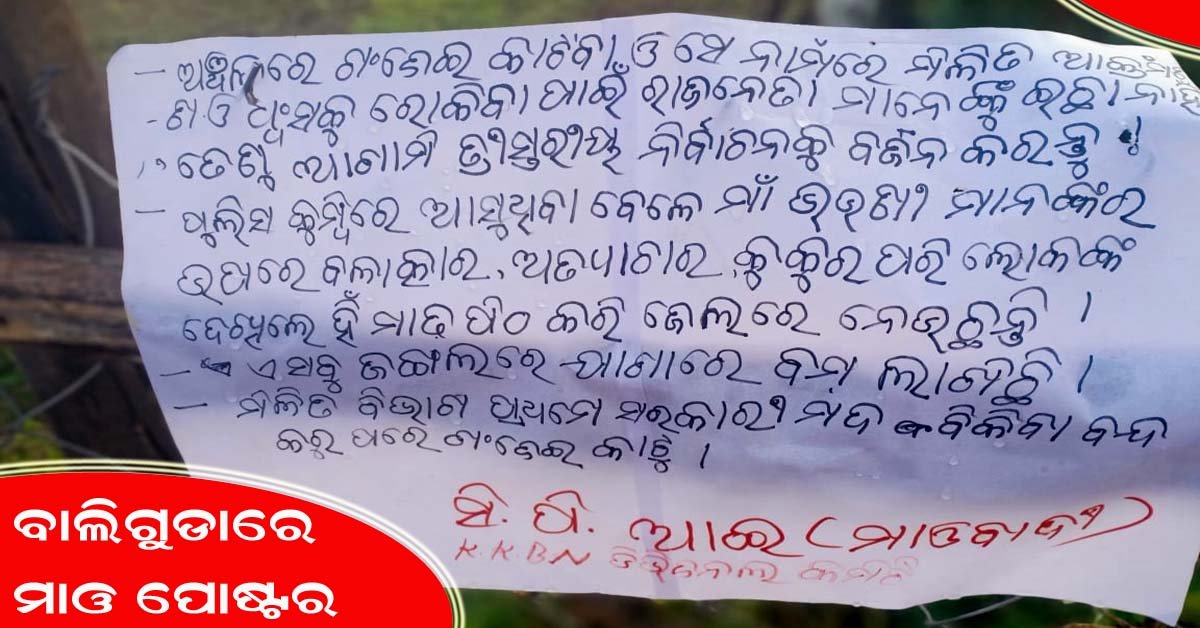 - ଅଞ୍ଚଳରେ ଗଂଜେଇ କାଟିବା ଓ ସେ ନାମରେ ମିଳିତ
- ଓ ଧ୍ୱଂସକୁ ରୋକିବା ପାଇଁ ରାଜନେତା ମାନେଙ୍କୁ ଇଚ୍ଛା ନାହିଁ
ତେଣୁ ଆଗାମି ତ୍ରୀସ୍ତରୀୟ ନିର୍ବାଚନକୁ ବର୍ଜନ କରନ୍ତୁ !
- ପୁଲିସ କୁମ୍ବିଂରେ ଆସୁଥିବା ବେଳେ ମାଁ ଭଉଣୀ ମାନଙ୍କର
ଉପରେ ବଲାତ୍କାର, ଅତ୍ୟାଚାର, କୁକୁର ପରି ଲୋକଙ୍କ
ଦେଖିଲେ ହିଁ ମାଡ଼ ପିଠ କରି ଜେଲରେ ନେଉଛନ୍ତି ।
- ଏ ସବୁ ଜଙ୍ଗଲରେ ଯାଗାରେ ବମ୍ ଲାଗିଛି ।
- ମିଳିତ ବିଭାଗ ପ୍ରଥମେ ସରକାରୀ ମଦ ବିକିବା ବନ୍ଦ
କରୁ ପରେ ଗଂଜେଇ କାଟୁ ।
ସି. ପି. ଆଇ (ମାଓବାଦୀ)
K.K.B.N ଡିଭିଜନାଲ କମିଟି
ବାଲିଗୁଡାରେ
ମାଓ ପୋଷ୍ଟର